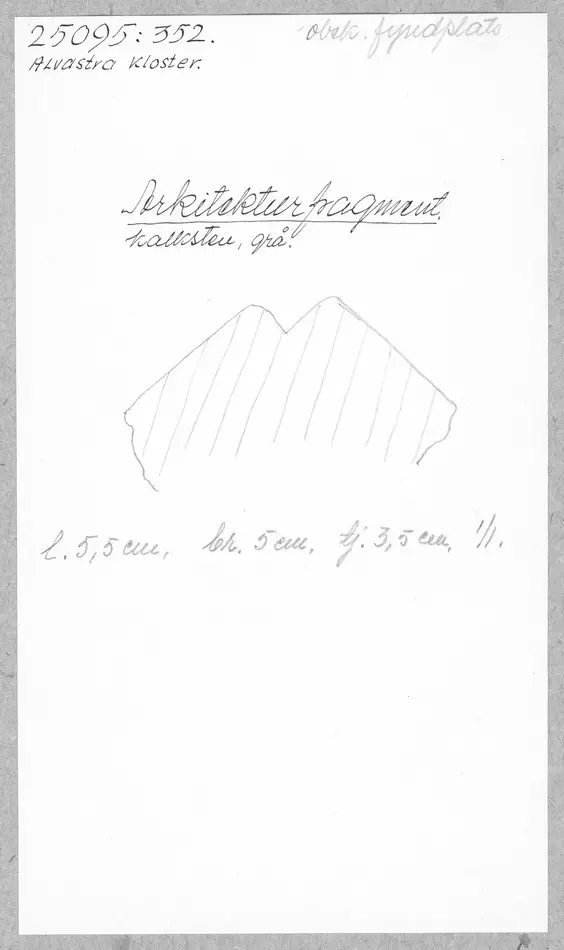 25095:352.
obsk. fyndplats
Alvastra Kloster.
Arkitekturfragment.
kalksten, grå.
l. 5,5 cm, br. 5 cm, tj. 3,5 cm, 1/1.